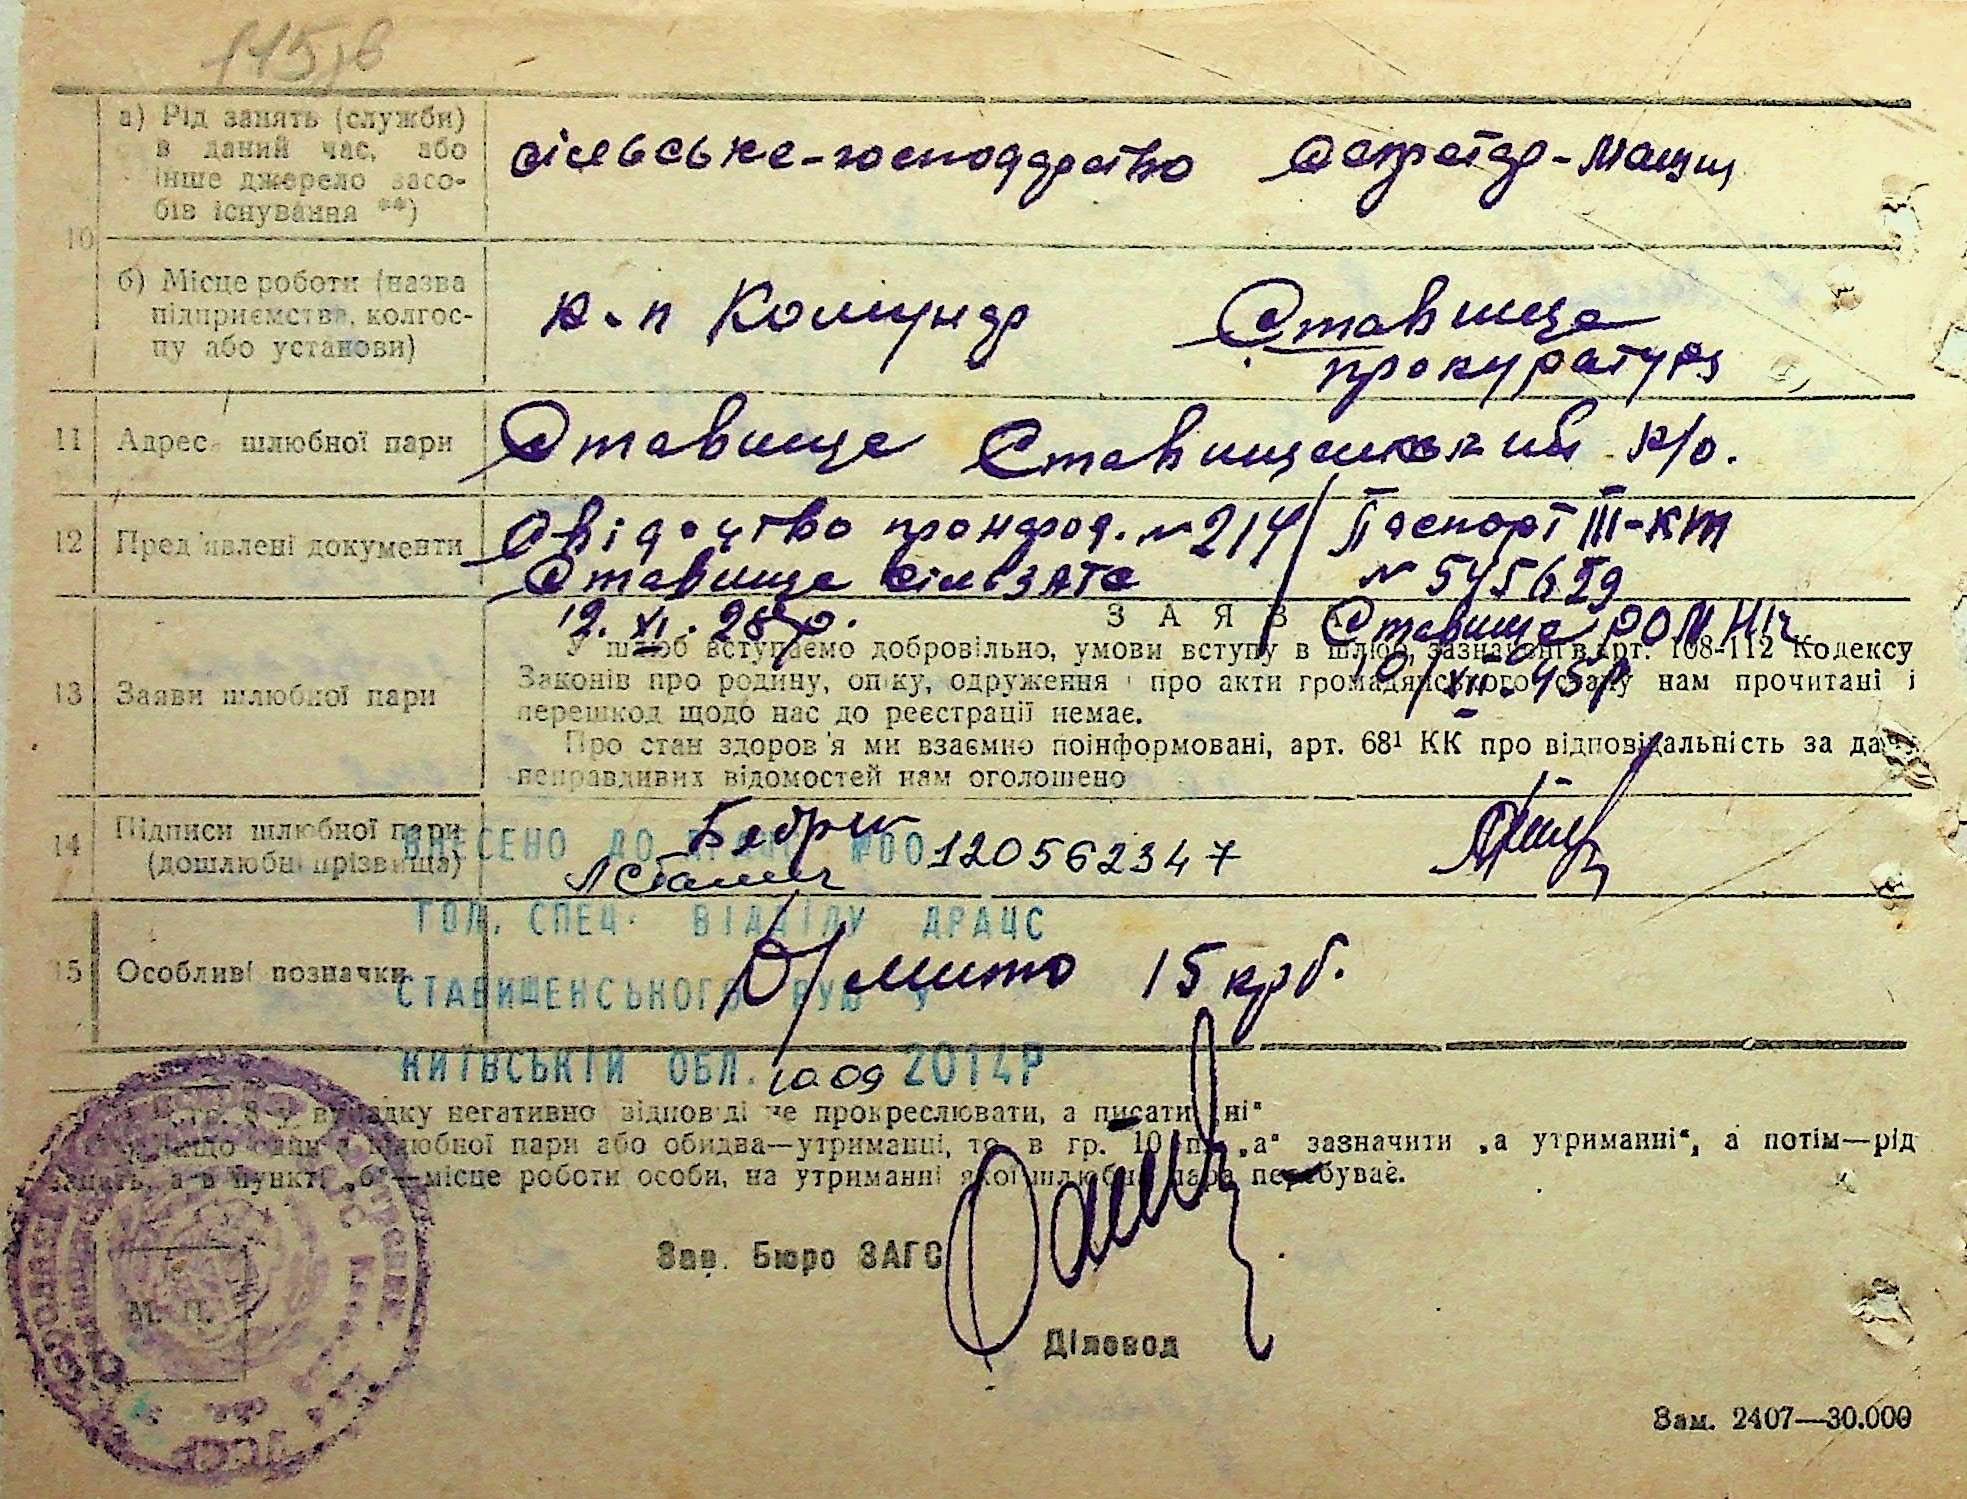 115
а) Рід занять (служби) в даний час, або інше джерело засобів існування **)
сільське-господарство
10
б) Місце роботи (назва підприємства, колгоспу або установи)
к-п Комунар Ставище
прокуратура
11 Адреса шлюбної пари Ставище Ставищенський р/о.
12 Пред'явлені документи
Свідоцтво про народ. № 214 Паспорт III-КТ
Ставище № 545629
12. XI. 28 р. Ставище РО М
XII. 45 р
ЗАЯВ
13 Заяви шлюбної пари
У шлюб вступаємо добровільно, умови вступу в шлюб, зазначені в арт. 108-112 Кодексу
Законів про родину, опіку, одруження і про акти громадянського стану нам прочитані і
перешкод щодо нас до реєстрації немає.
Про стан здоров'я ми взаємно поінформовані, арт. 68¹ КК про відповідальність за дачу
неправдивих відомостей нам оголошено
14 Підписи шлюбної пари (дошлюбні прізвища)
ВНЕСЕНО ДО №00120562347
ГОЛ. СПЕЦ. ВІДДІЛУ ДРАЦС
15 Особливі позначки
Д/мито 15 крб.
СТАВИЩЕНСЬКОГО РУЮ У
КИЇВСЬКІЙ ОБЛ. 10.09 2014Р
гр. 8 у випадку негативної відповіді не прокреслювати, а писати „ні“
Якщо один з шлюбної пари або обидва—утриманці, то в гр. 10 п. „а“ зазначити „а утриманні“, а потім—рід
занять, а в пункті „б“—місце роботи особи, на утриманні якої шлюбна пара перебуває.
Зав. Бюро ЗАГС
М. П.
Діловод
Зам. 2407—30.000